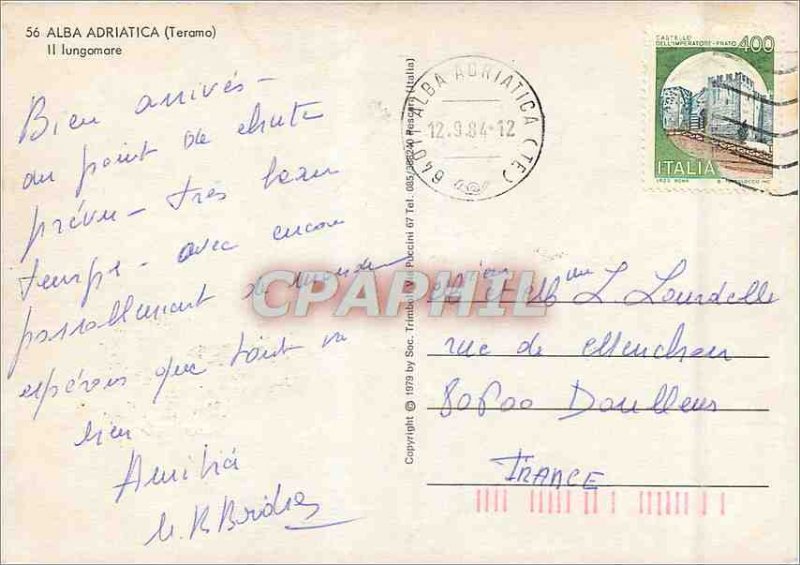 56 ALBA ADRIATICA (Teramo)
Il lungomare
Bien arrivés -
au point de chute
prévu - très beau
temps - avec encore
passablement de monde
espérons que tout va
bien
Amitié
Copyright © 1979 by Soc. Trimboli Via Puccini 67 Tel. 085/ Pescara (Italia)
64011 ALBA ADRIATICA (TE)
12.9.84-12
CASTELLO
DELL'IMPERATORE-PRATO
400
ITALIA
CPAPHIL
Mr et Mme L Lourdelle
rue de Menchon
80600 Doullens
FRANCE